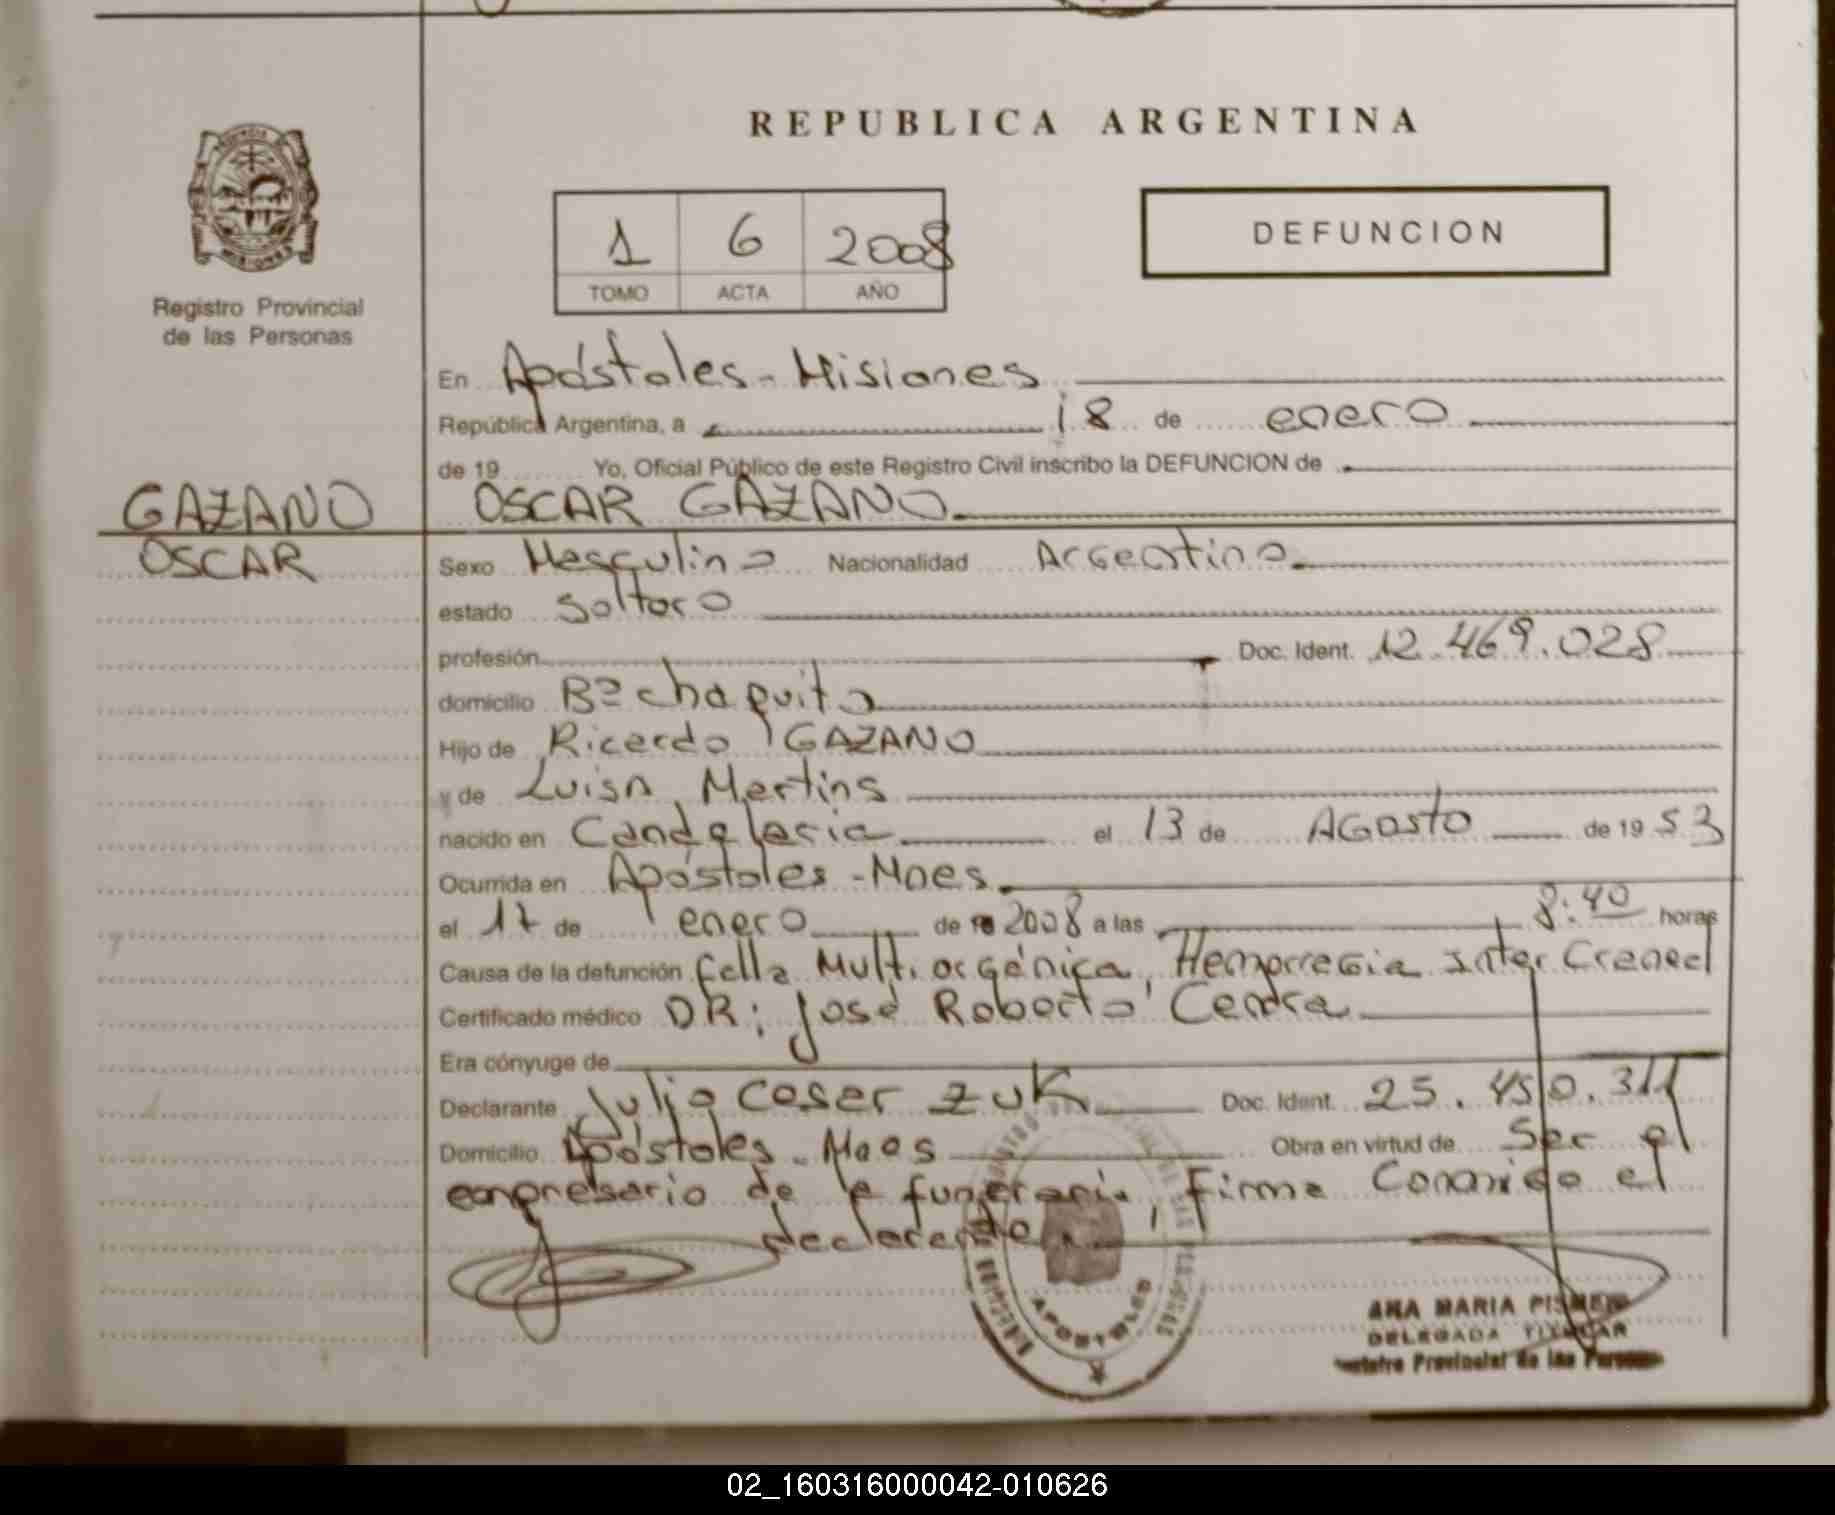 REPUBLICA ARGENTINA
1 6 2008
TOMO ACTA AÑO
DEFUNCION
PROVINCIA
MISIONES
Registro Provincial
de las Personas
En Apóstoles - Misiones
República Argentina, a 18 de enero
de 19 Yo, Oficial Público de este Registro Civil inscribo la DEFUNCION de
GAZANO OSCAR GAZANO
OSCAR Sexo Masculino Nacionalidad Argentino
estado Soltero
profesión Doc. Ident. 12.469.028
domicilio Bº chaquito
Hijo de Ricardo GAZANO
y de Luisa Martins
nacido en Candelaria el 13 de AGosto de 19 53
Ocurrida en Apóstoles - Mnes
el 17 de enero de 2008 a las 8:40 horas
Causa de la defunción falla Multiorgánica, Hemorragia inter Craneal
Certificado médico DR: José Roberto Cendra
Era cónyuge de
Declarante Julio Cesar ZUK Doc. Ident. 25.450.311
Domicilio Apóstoles - Mnes Obra en virtud de Ser el
empresario de la funeraria, Firma Conmigo el
declarante
APOSTOLES
ANA MARIA
DELEGADA TITULAR
Registro Provincial de las Personas
02_160316000042-010626